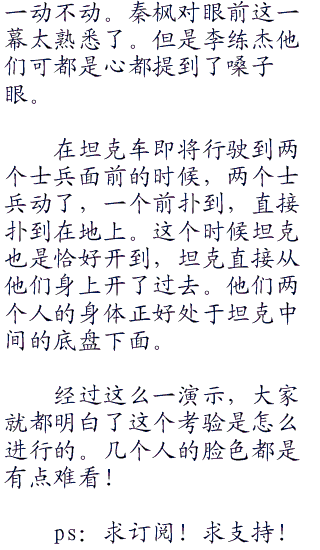 一动不动。秦枫对眼前这一
幕太熟悉了。但是李练杰他
们可都是心都提到了嗓子
眼。
在坦克车即将行驶到两
个士兵面前的时候，两个士
兵动了，一个前扑到，直接
扑到在地上。这个时候坦克
也是恰好开到，坦克直接从
他们身上开了过去。他们两
个人的身体正好处于坦克中
间的底盘下面。
经过这么一演示，大家
就都明白了这个考验是怎么
进行的。几个人的脸色都是
有点难看！
ps：求订阅！求支持！